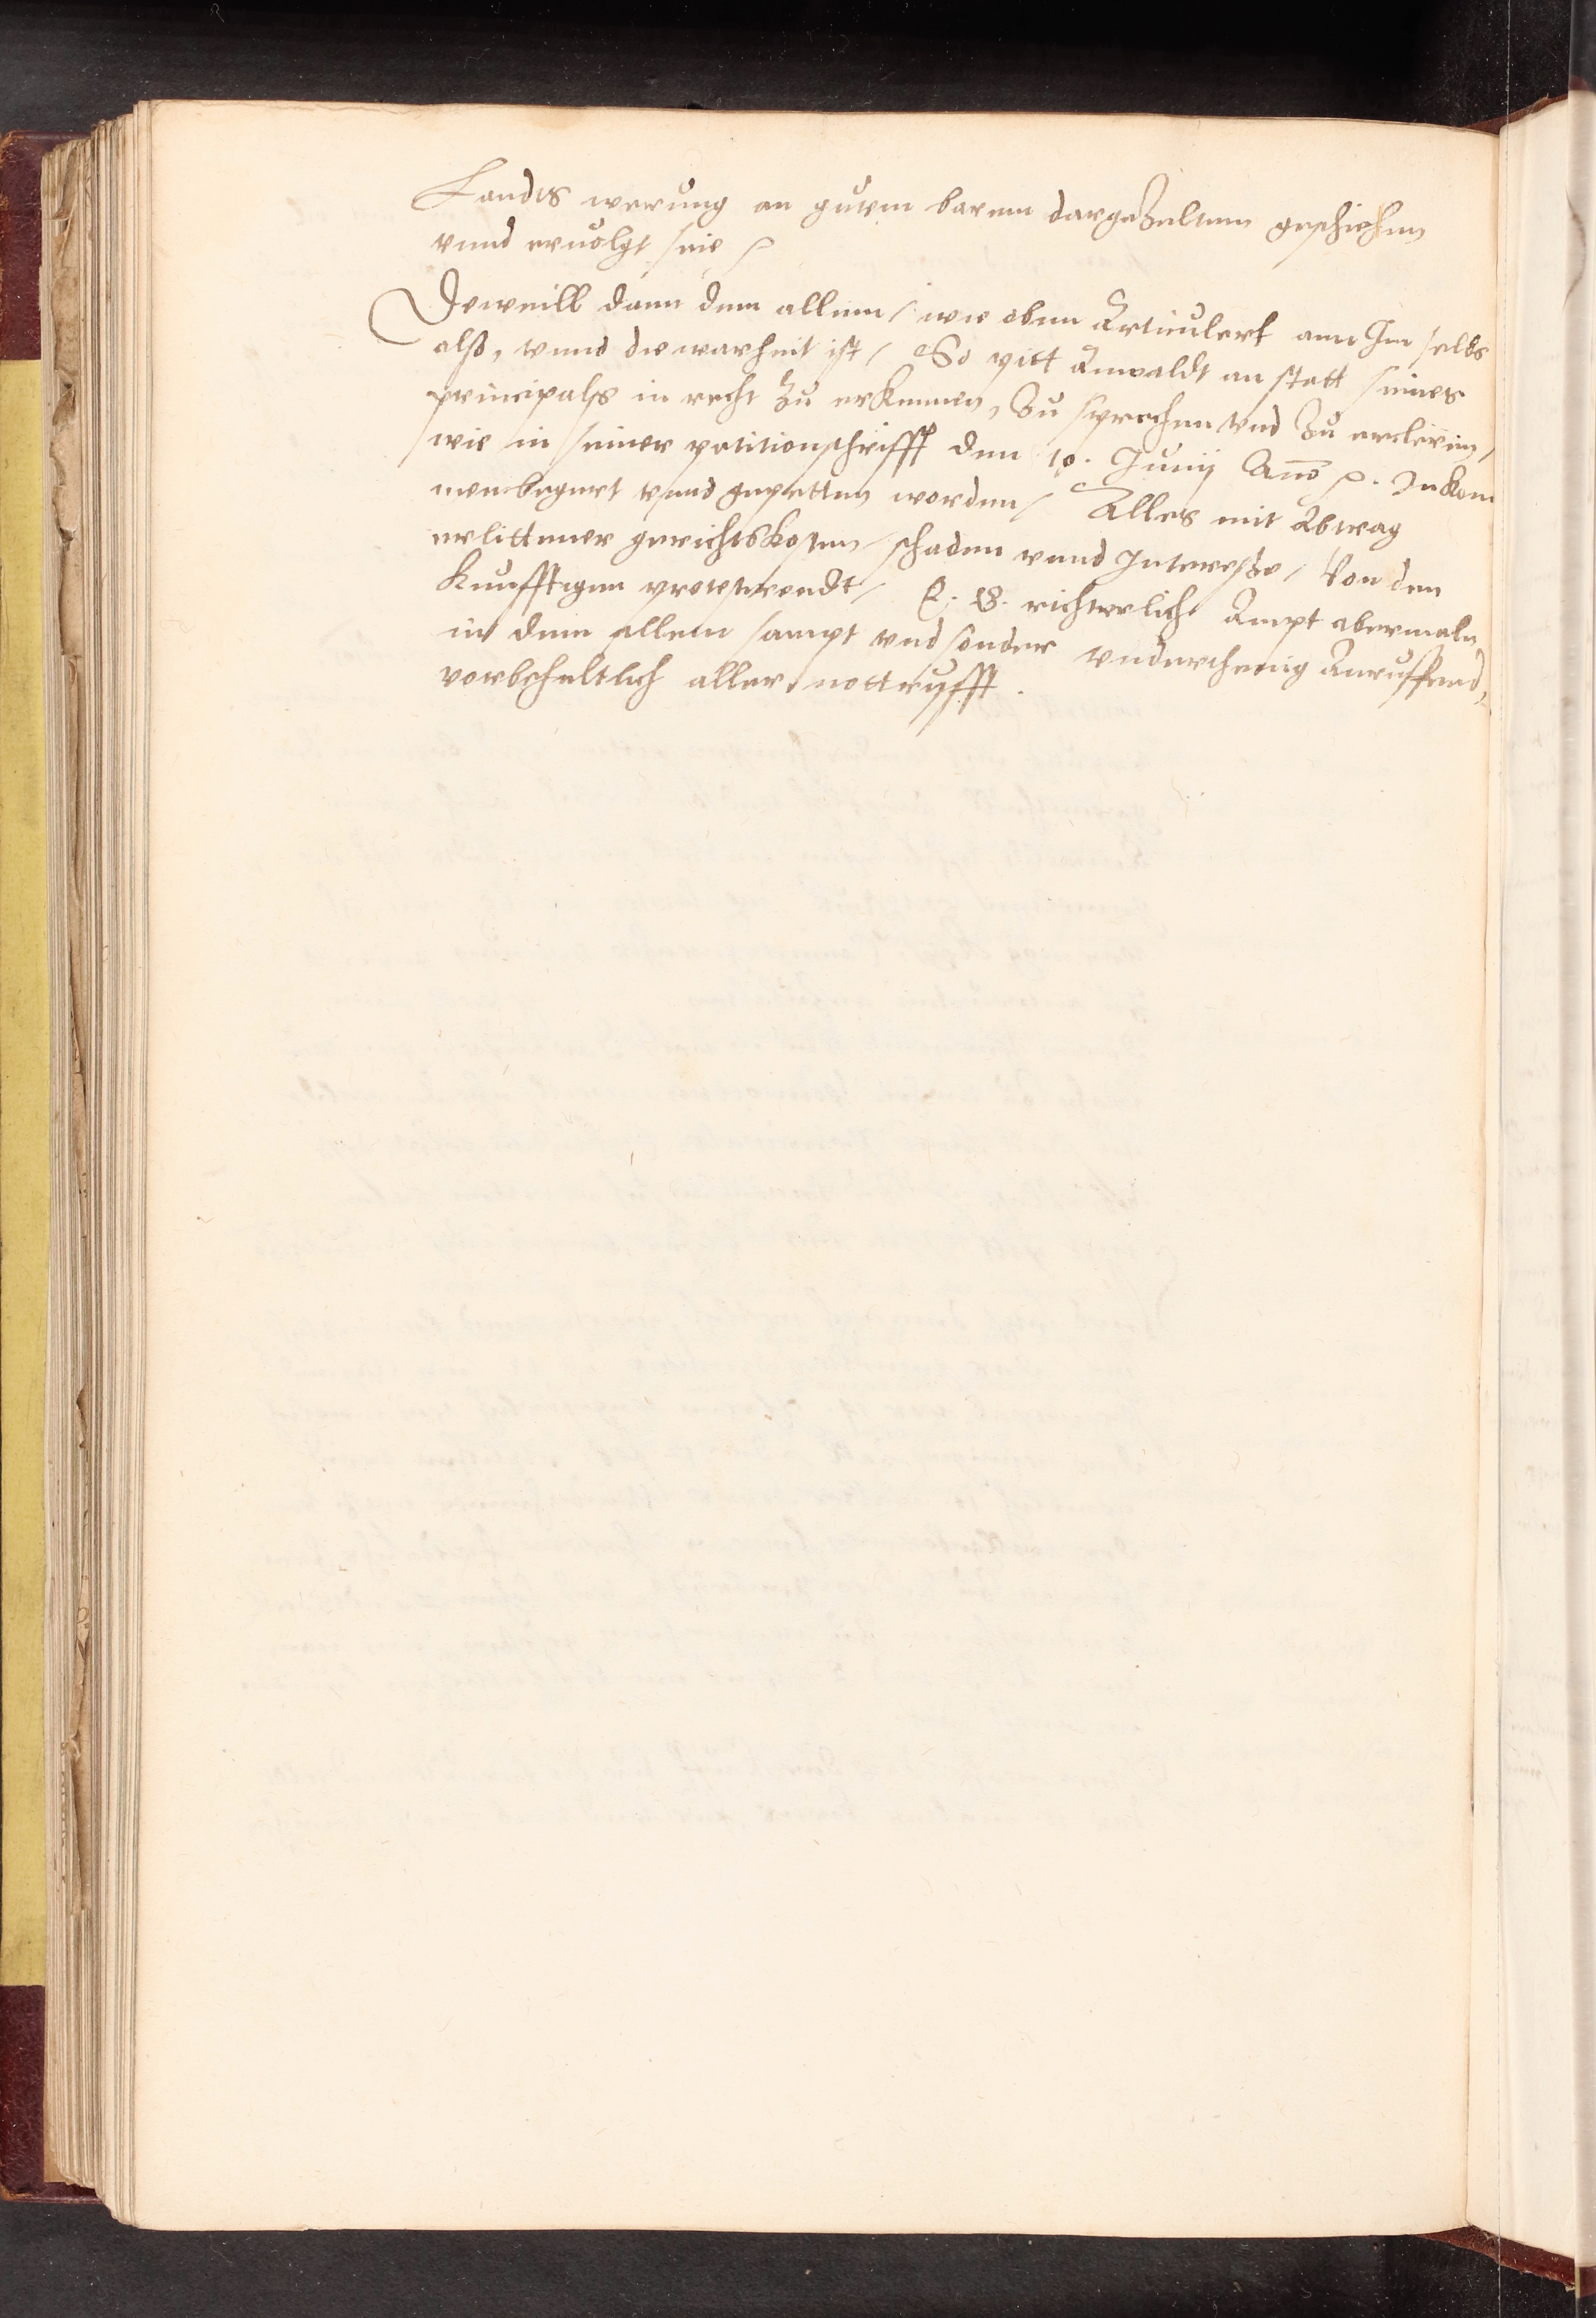 Landts werung an gutem barem dargezeltem geschiehen
vnnd ervolgt seie /
Dieweill dann dem allem / wie oben Articulert ann Im selbs
also, vnnd die warheit ist / So pitt Anwaldt an statt seines
principals in recht zu erkennen, zu sprechen vnd zu ercleren,
wie in seiner petitionschrifft den 10. Junij Anno /. Inkom
men begert vnnd gepetten worden / Alles mit Abtrag
erlittener gerichtskosten, schaden vnnd Interesse / Von den
Kunfftigen protesterendt / E: W. richterlich Ampt abermaln,
in dem allem sampt vnd sonder vnderthenig Anruffend,
vorbeheltlich aller notturfft.